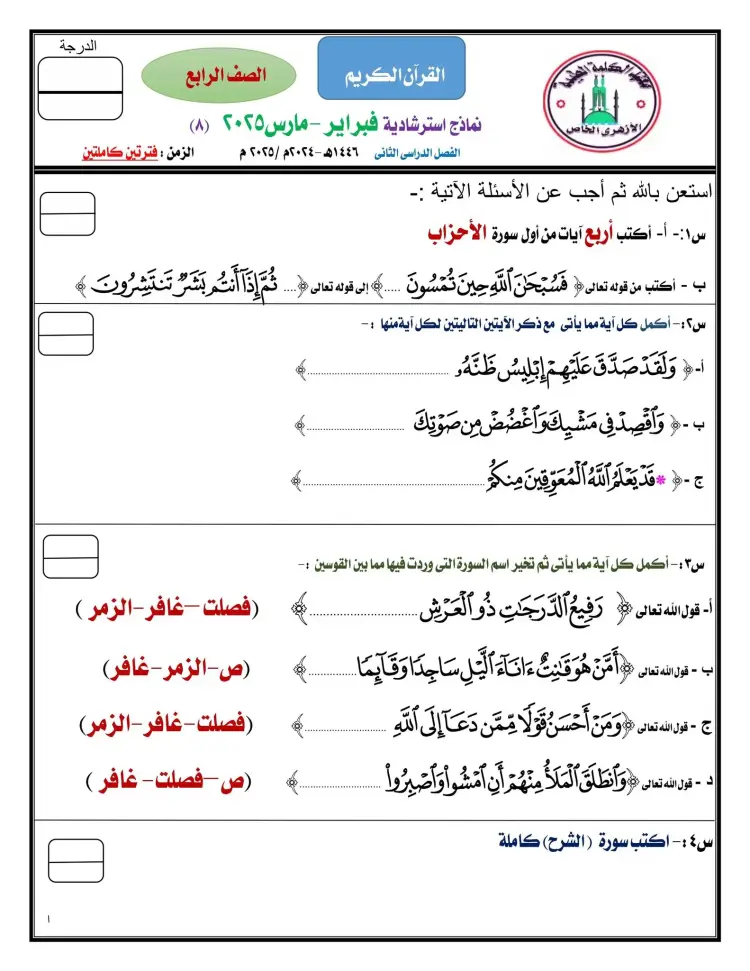 الدرجة
الصف الرابع
القرآن الكريم
الأزهرى الخاص
نماذج استرشادية فبراير -مارس٢٠٢٥ (٨)
الفصل الدراسى الثانى ١٤٤٦هـ-٢٠٢٤م /٢٠٢٥ م
الزمن : فترتين كاملتين
استعن بالله ثم أجب عن الأسئلة الآتية :-
س١:- أ- أكتب أربع آيات من أول سورة الأحزاب
ب - أكتب من قوله تعالى﴿ فَسُبْحَٰنَ ٱللَّهِ حِينَ تُمْسُونَ .....﴾ إلى قوله تعالى ﴿.... ثُمَّ إِذَآ أَنتُم بَشَرٌ تَنتَشِرُونَ ﴾
س٢:- أكمل كل آية مما يأتى مع ذكر الآيتين التاليتين لكل آية منها :-
أ-﴿ وَلَقَدْ صَدَّقَ عَلَيْهِمْ إِبْلِيسُ ظَنَّهُۥ ........................................﴾
ب -﴿ وَٱقْصِدْ فِى مَشْيِكَ وَٱغْضُضْ مِن صَوْتِكَ ..............................﴾
ج -﴿ *قَدْ يَعْلَمُ ٱللَّهُ ٱلْمُعَوِّقِينَ مِنكُمْ ..................................................﴾
س٣:- أكمل كل آية مما يأتى ثم تخير اسم السورة التى وردت فيها مما بين القوسين :-
أ- قول الله تعالى ﴿ رَفِيعُ ٱلدَّرَجَٰتِ ذُو ٱلْعَرْشِ ..............................﴾ (فصلت –غافر-الزمر )
ب - قول الله تعالى ﴿أَمَّنْ هُوَ قَٰنِتٌ ءَانَآءَ ٱلَّيْلِ سَاجِدًا وَقَآئِمًا ....................﴾ (ص-الزمر-غافر)
ج - قول الله تعالى ﴿وَمَنْ أَحْسَنُ قَوْلًا مِّمَّن دَعَآ إِلَى ٱللَّهِ ..............................﴾ (فصلت-غافر-الزمر)
د - قول الله تعالى ﴿وَٱنطَلَقَ ٱلْمَلَأُ مِنْهُمْ أَنِ ٱمْشُوا۟ وَٱصْبِرُوا۟ ..............................﴾ (ص–فصلت- غافر )
س٤:- اكتب سورة (الشرح) كاملة
١